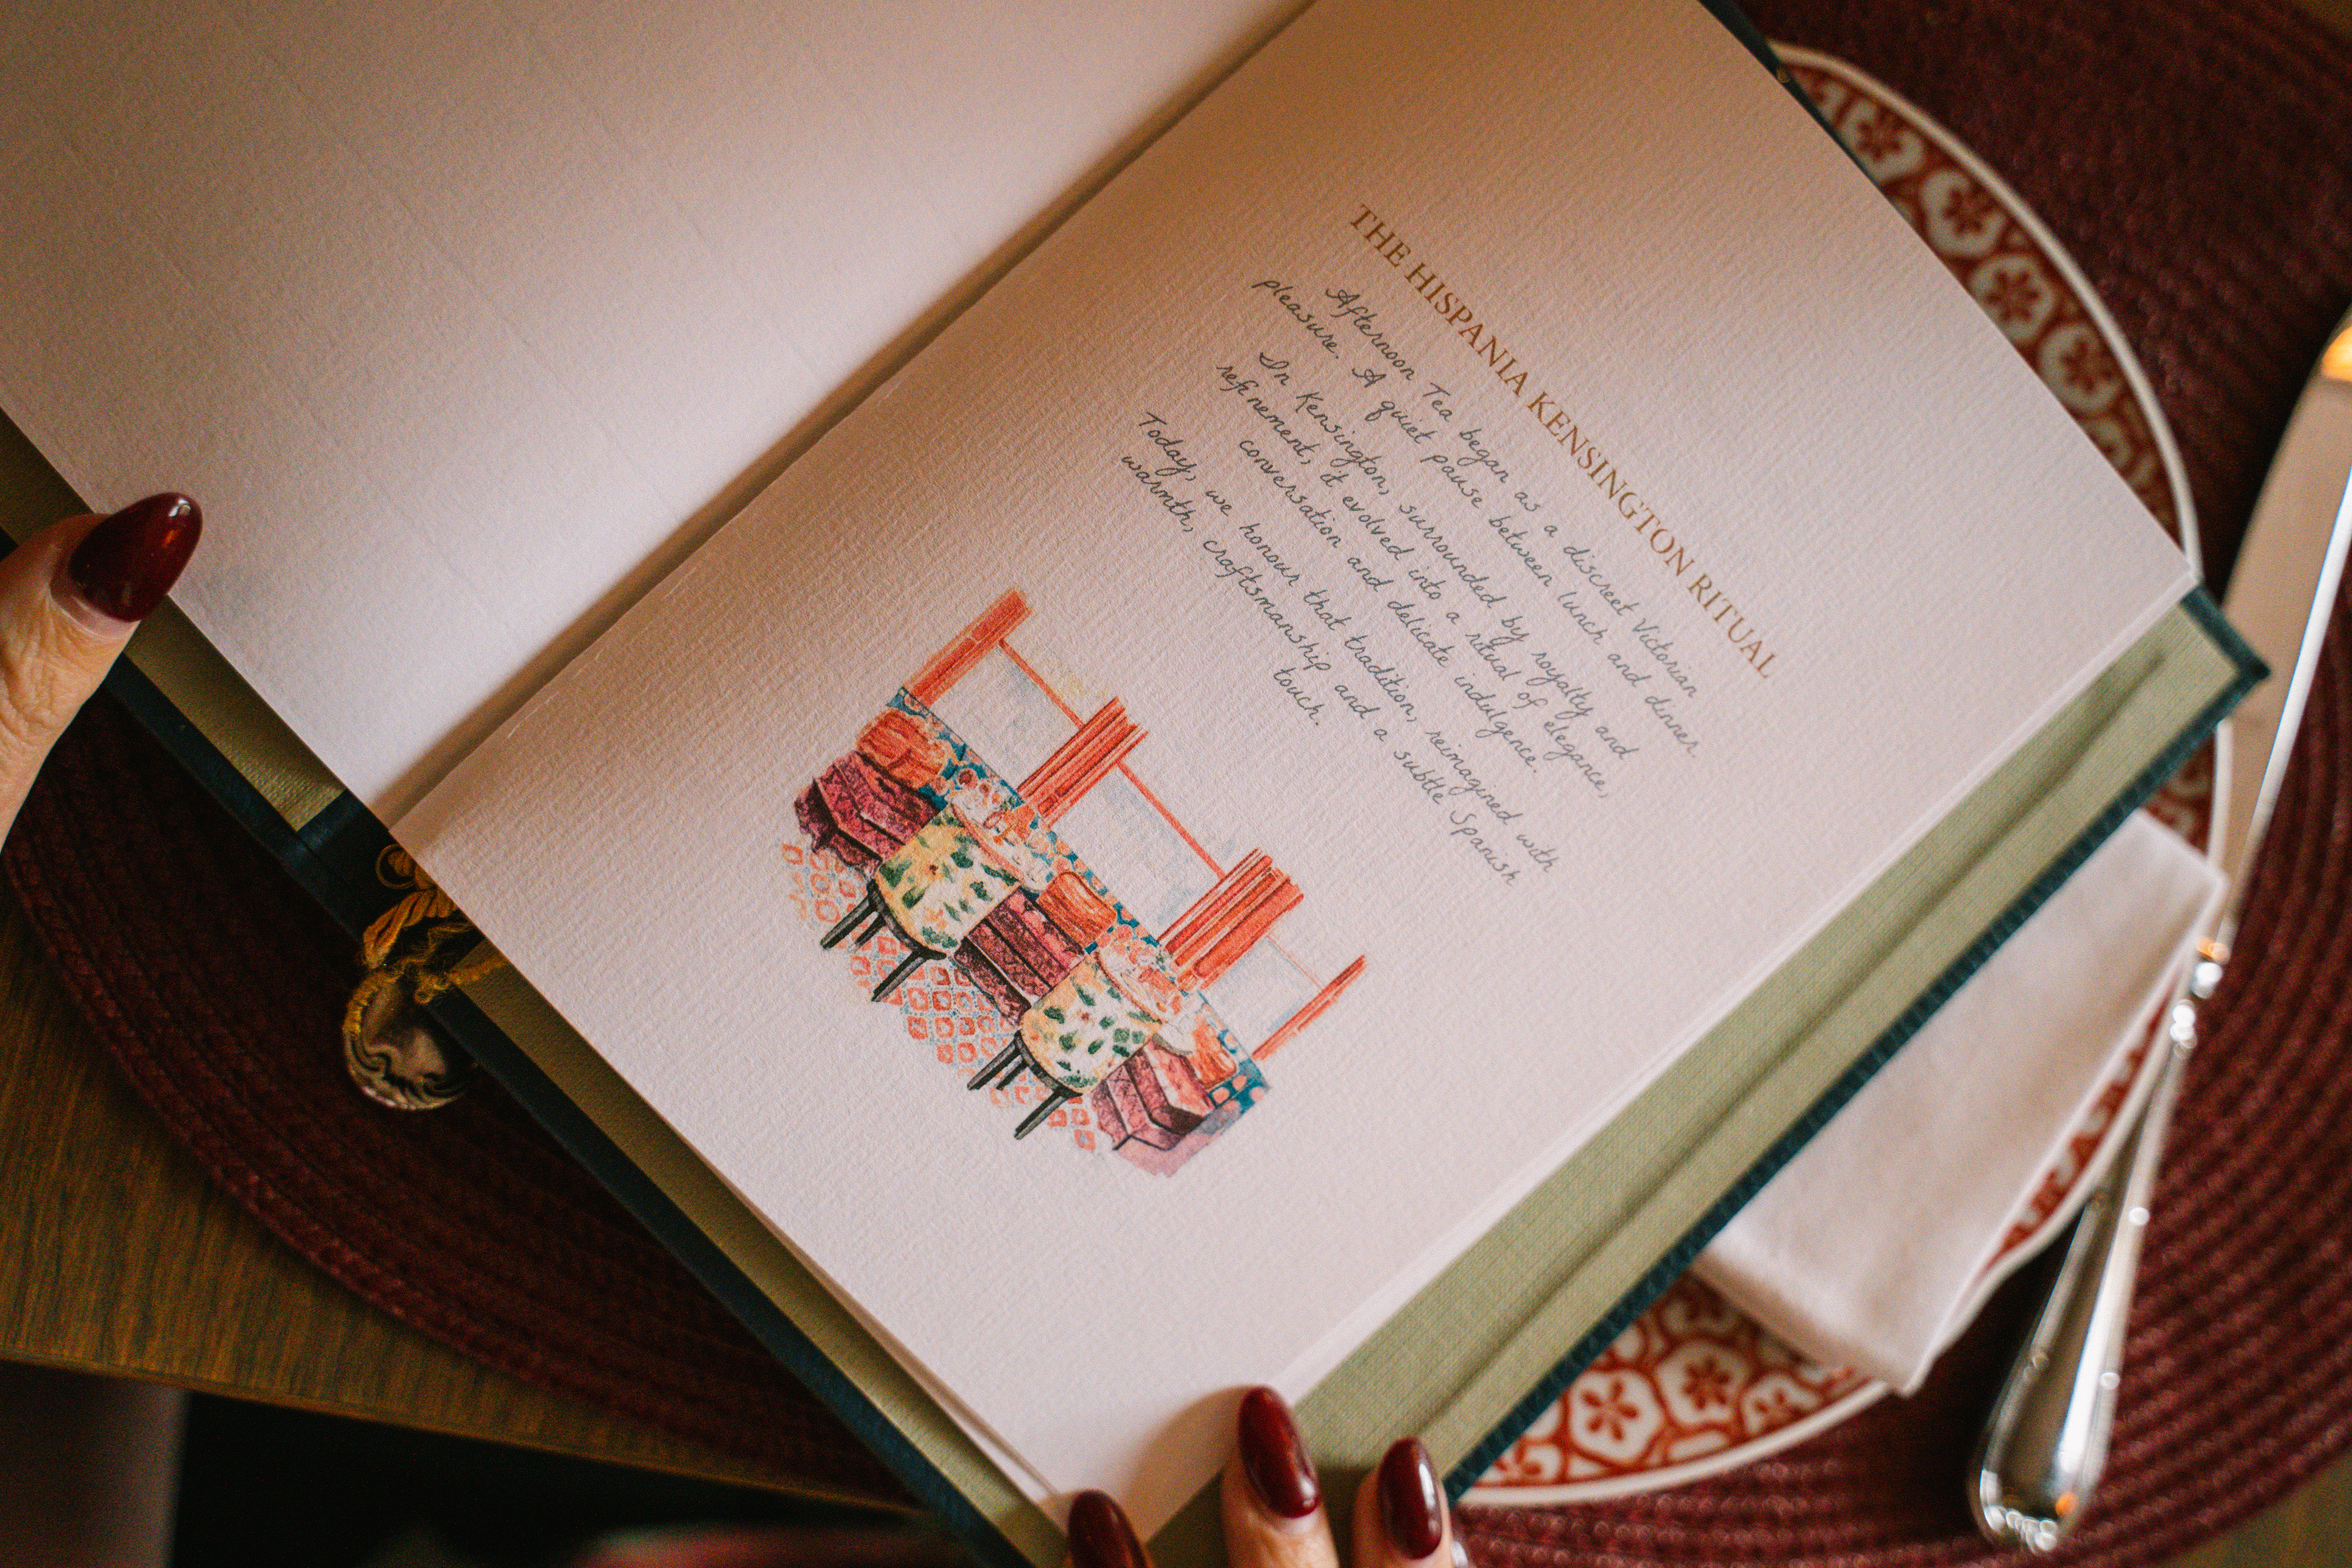 THE HISPANIA KENSINGTON RITUAL
Afternoon Tea began as a discreet Victorian
pleasure. A quiet pause between lunch and dinner.
In Kensington, surrounded by royalty and
refinement, it evolved into a ritual of elegance,
conversation and delicate indulgence.
Today, we honour that tradition, reimagined with
warmth, craftsmanship and a subtle Spanish
touch.